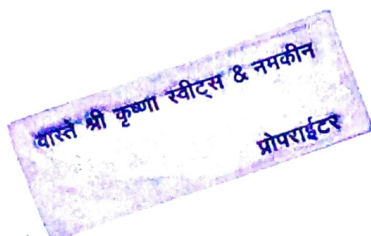 वास्ते श्री कृष्णा स्वीट्स & नमकीन
प्रोपराईटर